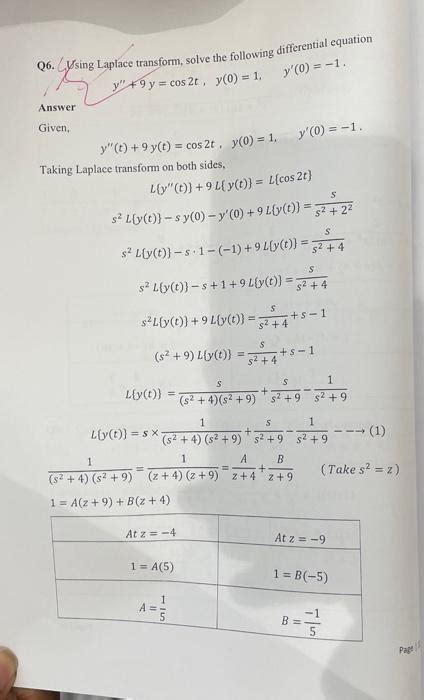 Q6. Using Laplace transform, solve the following differential equation
y'' + 9 y = cos 2t , y(0) = 1, y'(0) = −1.
Answer
Given,
y''(t) + 9 y(t) = cos 2t , y(0) = 1, y'(0) = −1.
Taking Laplace transform on both sides,
L{y''(t)} + 9 L{ y(t)} = L{cos 2t}
s² L{y(t)} − s y(0) − y'(0) + 9 L{y(t)} = s / (s² + 2²)
s² L{y(t)} − s · 1 − (−1) + 9 L{y(t)} = s / (s² + 4)
s² L{y(t)} − s + 1 + 9 L{y(t)} = s / (s² + 4)
s² L{y(t)} + 9 L{y(t)} = s / (s² + 4) + s − 1
(s² + 9) L{y(t)} = s / (s² + 4) + s − 1
L{y(t)} = s / ((s² + 4)(s² + 9)) + s / (s² + 9) − 1 / (s² + 9)
L{y(t)} = s × 1 / ((s² + 4) (s² + 9)) + s / (s² + 9) − 1 / (s² + 9) - - -→ (1)
1 / ((s² + 4) (s² + 9)) = 1 / ((z + 4) (z + 9)) = A / (z + 4) + B / (z + 9) (Take s² = z)
1 = A(z + 9) + B(z + 4)
At z = −4 At z = −9
1 = A(5) 1 = B(−5)
A = 1/5 B = −1/5
Page